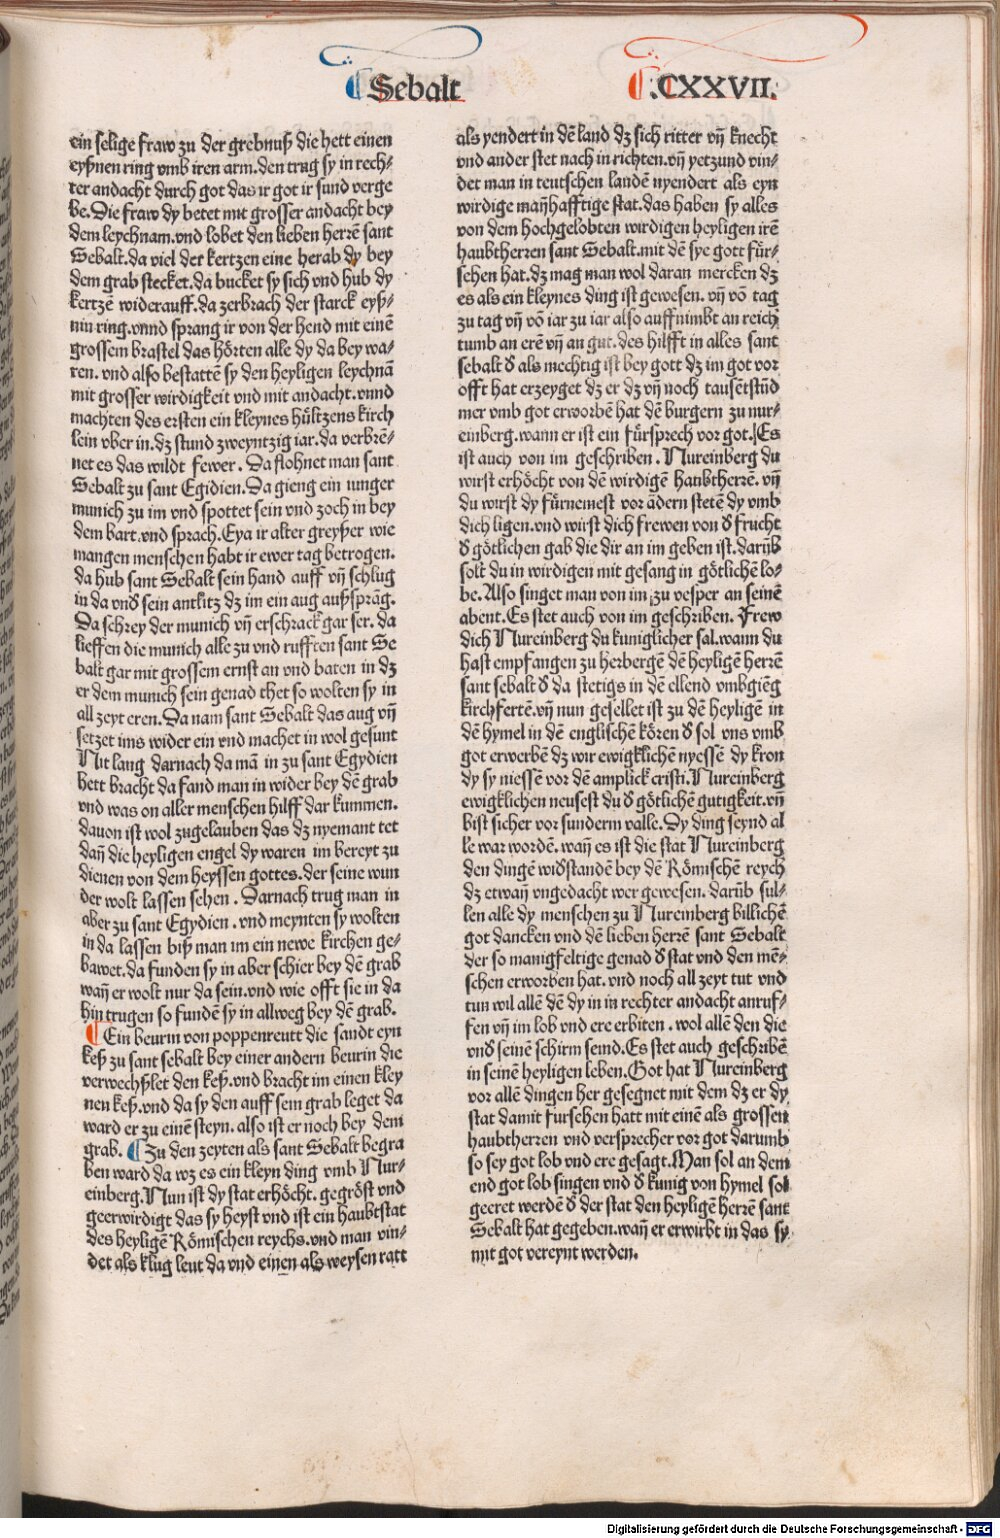 Sebalt
.CXXVII.
ein selige fraw zu der grebnuß die hett einen
eyßnen ring vmb iren arm.den trug sy in rech⸗
ter andacht durch got das ir got ir sund verge
be.Die fraw dy betet mit grosser andacht bey
dem leychnam.vnd lobet den lieben herrē sant
Sebalt.da viel der kertzen eine herab dy bey
dem grab stecket.da bucket sy sich vnd hub dy
kertzē widerauff.da zerbrach der starck eyß⸗
nin ring.vnnd sprang ir von der hend mit einē
grossem brastel das hörten alle dy da bey wa⸗
ren. vnd also bestattē sy den heyligen leychnā
mit grosser wirdigkeit vnd mit andacht.vnnd
machten des ersten ein kleynes hültzens kirch
lein vber in.dz stund zweyntzig iar.da verbrē⸗
net es das wildt fewer. Da flohnet man sant
Sebalt zu sant Egidien.Da gieng ein iunger
munich zu im vnd spottet sein vnd zoch in bey
dem bart.vnd sprach.Eya ir alter greyßer wie
mangen menschen habt ir ewer tag betrogen.
da hub sant Sebalt sein hand auff vñ schlug
in da vnď sein antlitz dz im ein aug außsprāg.
Da schrey der munich vñ erschrack gar ser. da
lieffen die munich alle zu vnd rufften sant Se
balt gar mit grossem ernst an vnd baten in dz
er dem munich sein genad thet so wolten sy in
all zeyt eren. Da nam sant Sebalt das aug vñ
setzet ims wider ein vnd machet in wol gesunt
Nit lang darnach da mā in zu sant Egydien
hett bracht da fand man in wider bey dē grab
vnd was on aller menschen hilff dar kummen.
dauon ist wol zugelauben das dz nyemant tet
dañ die heyligen engel dy waren im bereyt zu
dienen von dem heyssen gottes.der seine wun
der wolt lassen sehen. Darnach trug man in
aber zu sant Egydien.vnd meynten sy wolten
in da lassen biß man im ein newe kirchen ge⸗
bawet.da funden sy in aber schier bey dē grab
wañ er wolt nur da sein.vnd wie offt sie in da
hin trugen so fundē sy in allweg bey dē grab.
Ein beurin von poppenreutt die sandt eyn
keß zu sant sebalt bey einer andern beurin die
verwechßlet den keß.vnd bracht im einen kley
nen keß.vnd da sy den auff sein grab leget da
ward er zu einē steyn. also ist er noch bey dem
grab. Zu den zeyten als sant Sebalt begra
ben ward da wz es ein kleyn ding vmb Nur⸗
einberg.Nun ist dy stat erhöcht. gegröst vnd
geerwirdigt das sy heyst vnd ist ein haubtstat
des heyligē Römischen reychs.vnd man vin⸗
det als klug leut da vnd einen als weysen ratt
als yendert in dē land dz sich ritter vñ knecht
vnd ander stet nach in richten.vñ yetzund vin⸗
det man in teutschen landē nyendert als eyn
wirdige mañhafftige stat.das haben sy alles
von dem hochgelobten wirdigen heyligen irē
haubtherren sant Sebalt.mit dē sye gott für⸗
sehen hat.dz mag man wol daran mercken dz
es als ein kleynes ding ist gewesen. vñ vō tag
zu tag vñ vō iar zu iar also auffnimbt an reich
tumb an erē vñ an gut.des hilfft in alles sant
sebalt ď als mechtig ist bey gott dz im got vor
offt hat erzeyget dz er dz vñ noch tausētstūd
mer vmb got erworbē hat dē burgern zu nur⸗
einberg.wann er ist ein fürsprech vor got.Es
ist auch von im geschriben. Nureinberg du
wirst erhöcht von dē wirdigē haubtherrē. vñ
du wirst dy fürnemest vor ādern stetē dy vmb
dich ligen.vnd wirst dich frewen von ď frucht
ď götlichen gab die dir an im geben ist.darūb
solt du in wirdigen mit gesang in götlichē lo⸗
be.Also singet man von im zu vesper an seinē
abent.Es stet auch von im geschriben. Frew
dich Nureinberg du kuniglicher sal.wann du
hast empfangen zu herbergē dē heyligē herrē
sant sebalt ď da stetigs in dē ellend vmbgiēg
kirchfertē.vñ nun gesellet ist zu dē heyligē in
dē hymel in dē englischē kören ď sol vns vmb
got erwerbē dz wir ewigklichē nyessē dy kron
dy sy niessē vor dē amplick cristi.Nureinberg
ewigklichen neusest du ď götlichē gutigkeit.vñ
bist sicher vor sunderm valle.Dy ding seynd al
le war wordē. wañ es ist die stat Nureinberg
den dingē widstandē bey dē Römischē reych
dz etwañ vngedacht wer gewesen. darūb sul⸗
len alle dy menschen zu Nureinberg billichē
got dancken vnd dē lieben herrē sant Sebalt
der so manigfeltige genad ď stat vnd den mē⸗
schen erworben hat. vnd noch all zeyt tut vnd
tun wil allē dē dy in in rechter andacht anruf⸗
fen vñ im lob vnd ere erbiten. wol allē den die
vnď seinē schirm seind.Es stet auch geschribē
in seinē heyligen leben.Got hat Nureinberg
vor allē dingen her gesegnet mit dem dz er dy
stat damit fursehen hatt mit einē als grossen
haubtherren vnd versprecher vor got darumb
so sey got lob vnd ere gesagt.Man sol an dem
end got lob singen vnd ď kunig von hymel sol
geeret werdē ď der stat den heyligē herrē sant
Sebalt hat gegeben.wañ er erwirbt in das sy
mit got vereynt werden.
Digitalisierung gefördert durch die Deutsche Forschungsgemeinschaft - DFG